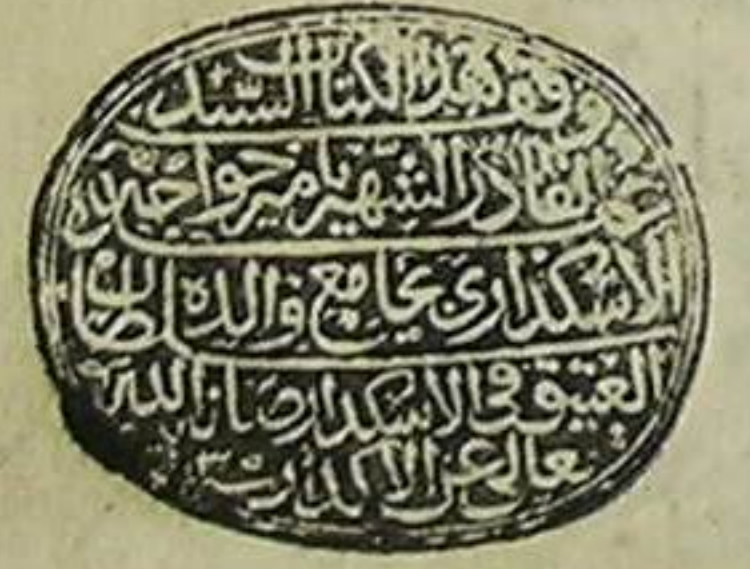 وقف هذا الكتاب السيد
عبد القادر الشهير بامير خواجه
الاسكداري بجامع والده سلطان
العتيق في الاسكدار صانها الله
تعالى عن الاكدار سنه